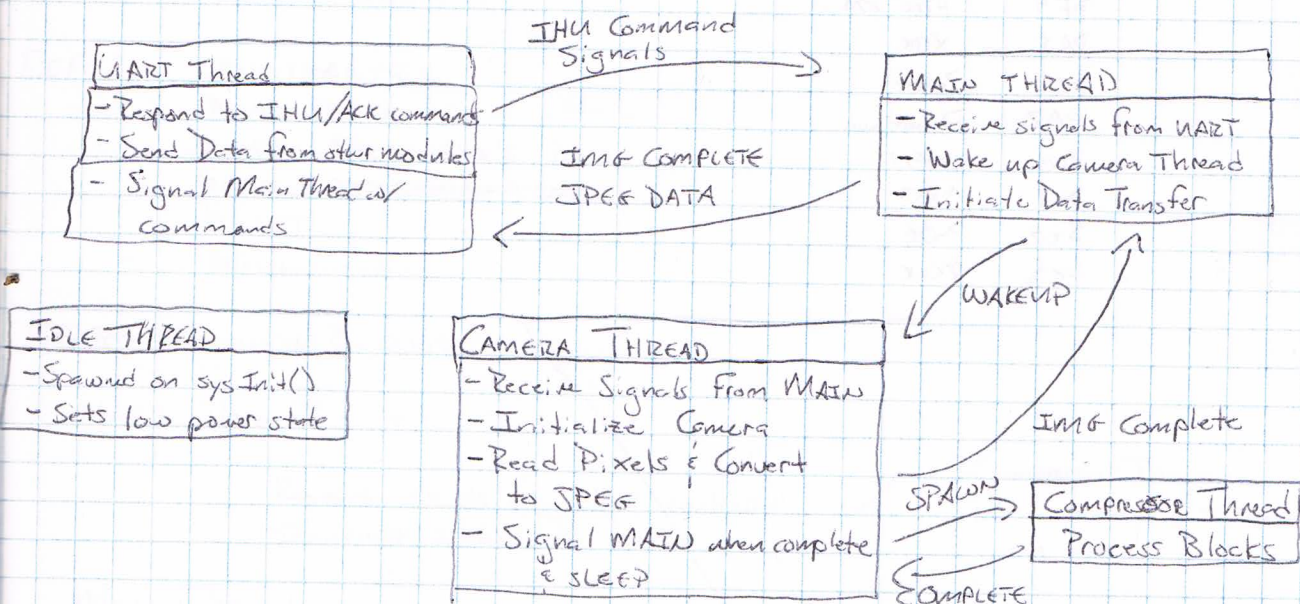 IHU Command
Signals
UART Thread
- Respond to IHU/ACK command
- Send Data from other modules
- Signal Main Thread w/
commands
MAIN THREAD
- Receive signals from UART
- Wake up Camera Thread
- Initiate Data Transfer
IMG COMPLETE
JPEG DATA
WAKEUP
IDLE THREAD
- Spawned on sysInit()
- Sets low power state
CAMERA THREAD
- Receive Signals from MAIN
- Initialize Camera
- Read Pixels & Convert
to JPEG
- Signal MAIN when complete
& SLEEP
IMG Complete
SPAWN
Compressor Thread
Process Blocks
COMPLETE